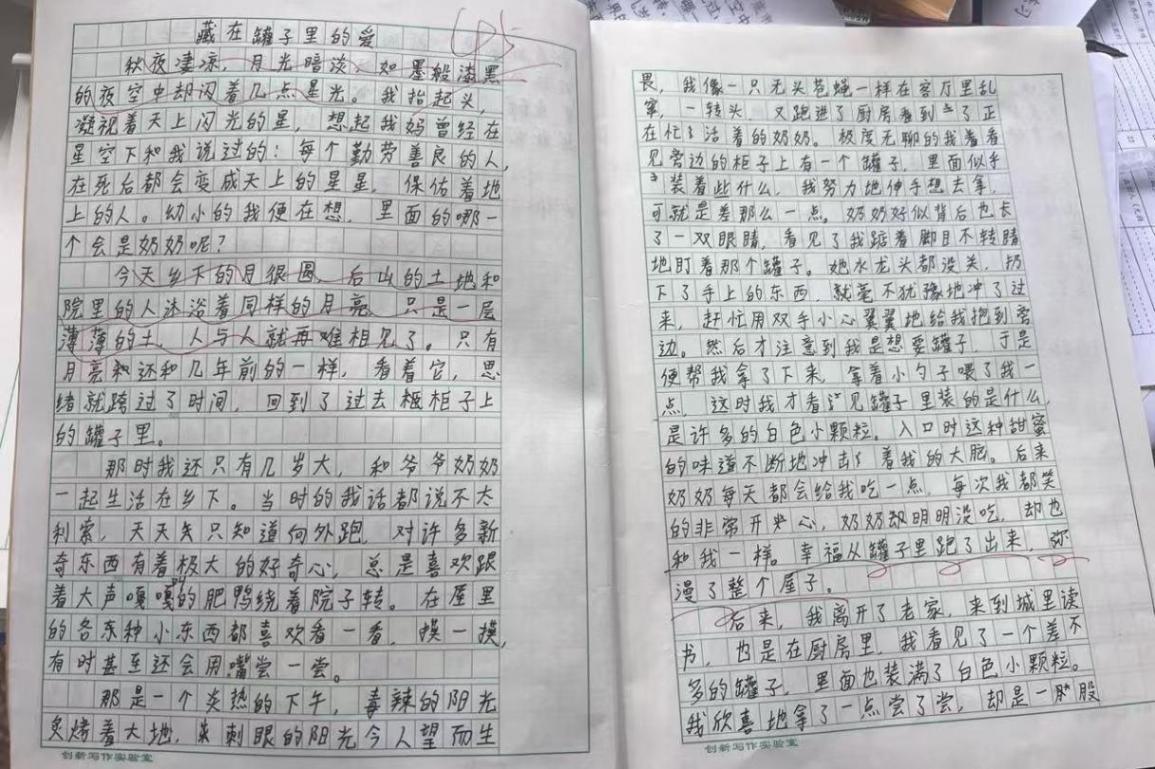 藏在罐子里的爱
秋夜凄凉，月光暗淡，如墨般漆黑
的夜空中却闪着几点星光。我抬起头，
凝视着天上闪光的星，想起我妈曾经在
星空下和我说过的：每个勤劳善良的人，
在死后都会变成天上的星星，保佑着地
上的人。幼小的我便在想，里面的哪一
个会是奶奶呢？
今天乡下的月很圆，后山的土地和
院里的人沐浴着同样的月亮，只是一层
薄薄的土，人与人就再难相见了。只有
月亮还和几年前的一样，看着它，思
绪就跨过了时间，回到了过去柜子上
的罐子里。
那时我还只有几岁大，和爷爷奶奶
一起生活在乡下。当时的我话都说不大
利索，天天只知道向外跑，对许多新
奇东西有着极大的好奇心，总是喜欢跟
着大声嘎嘎的肥鸭绕着院子转。在屋里
的各种小东西都喜欢看一看，摸一摸，
有时甚至还会用嘴尝一尝。
那是一个炎热的下午，毒辣的阳光
炙烤着大地，刺眼的阳光令人望而生
创新写作实验室
畏，我像一只无头苍蝇一样在客厅里乱
窜，一转头，又跑进了厨房看到了正
在忙活着的奶奶。极度无聊的我看看
见旁边的柜子上有一个罐子，里面似乎
装着些什么，我努力地伸手想去拿，
可就是差那么一点。奶奶好似背后也长
了一双眼睛，看见了我踮着脚目不转睛
地盯着那个罐子。她水龙头都没关，扔
下了手上的东西，就毫不犹豫地冲了过
来，赶忙用双手小心翼翼地给我抱到旁
边。然后才注意到我是想要罐子，于是
便帮我拿了下来，拿着小勺子喂了我一
点，这时我才看见罐子里装的是什么，
是许多的白色小颗粒，入口时这种甜蜜
的味道不断地冲击着我的大脑。后来
奶奶每天都会给我吃一点，每次我都笑
的非常开心，奶奶却明明没吃，却也
和我一样。幸福从罐子里跑了出来，弥
漫了整个屋子。
后来，我离开了老家，来到城里读
书，也是在厨房里，我看见了一个差不
多的罐子，里面也装满了白色小颗粒。
我欣喜地拿了一点尝了尝，却是一股
创新写作实验室